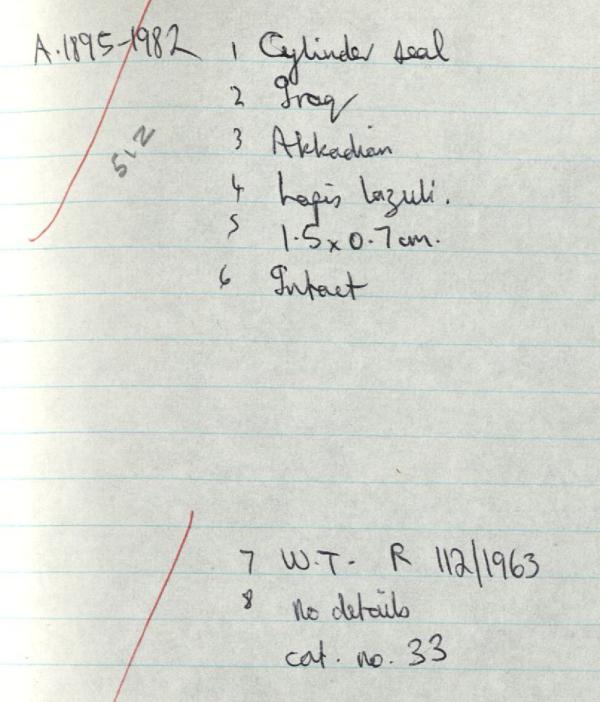 A.1895-1982 1 Cylinder seal
2 Iraq
3 Akkadian
512
4 Lapis lazuli.
5 1.5 x 0.7 cm.
6 Intact
7 W.T. R 112/1963
8 no details
cat. no. 33